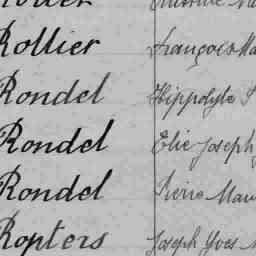 Rollier François
Rondel Hippolyte
Rondel Elie Joseph
Rondel Pierre
Ropters Joseph Yves